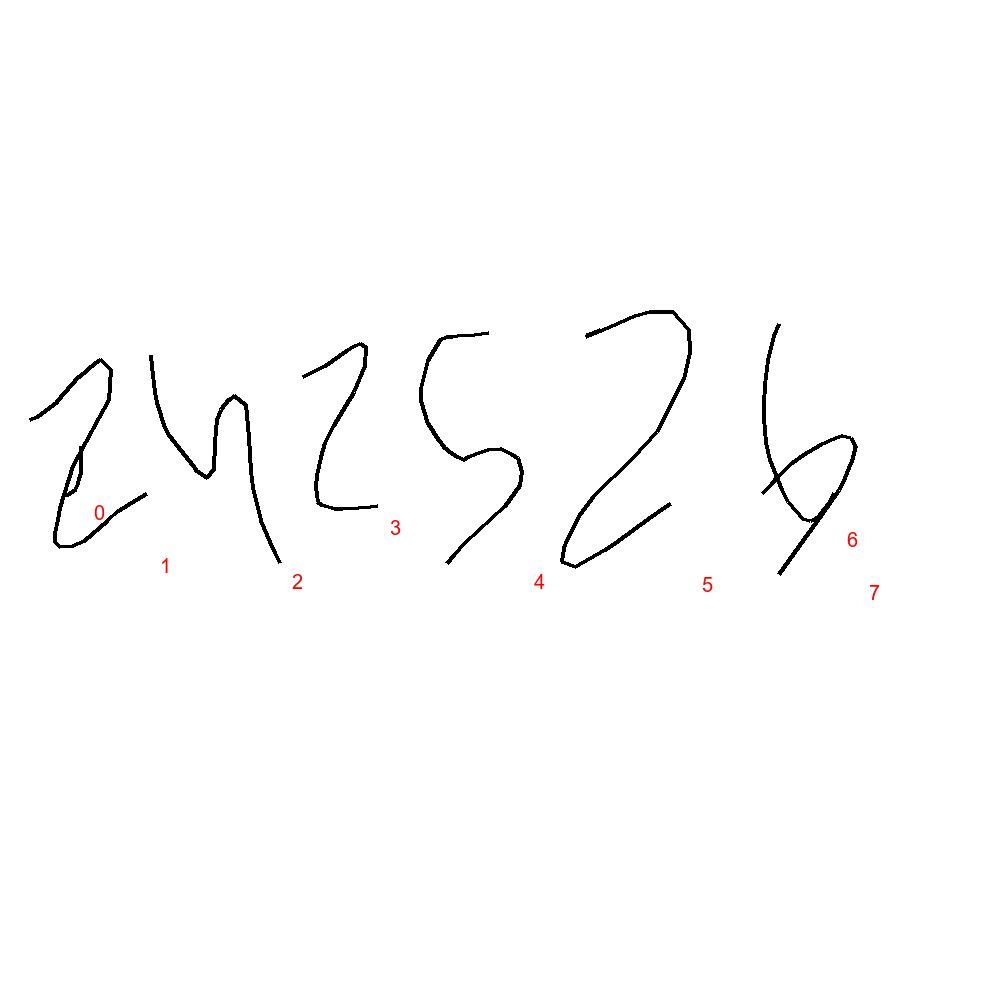 242526
0 1 2 3 4 5 6 7